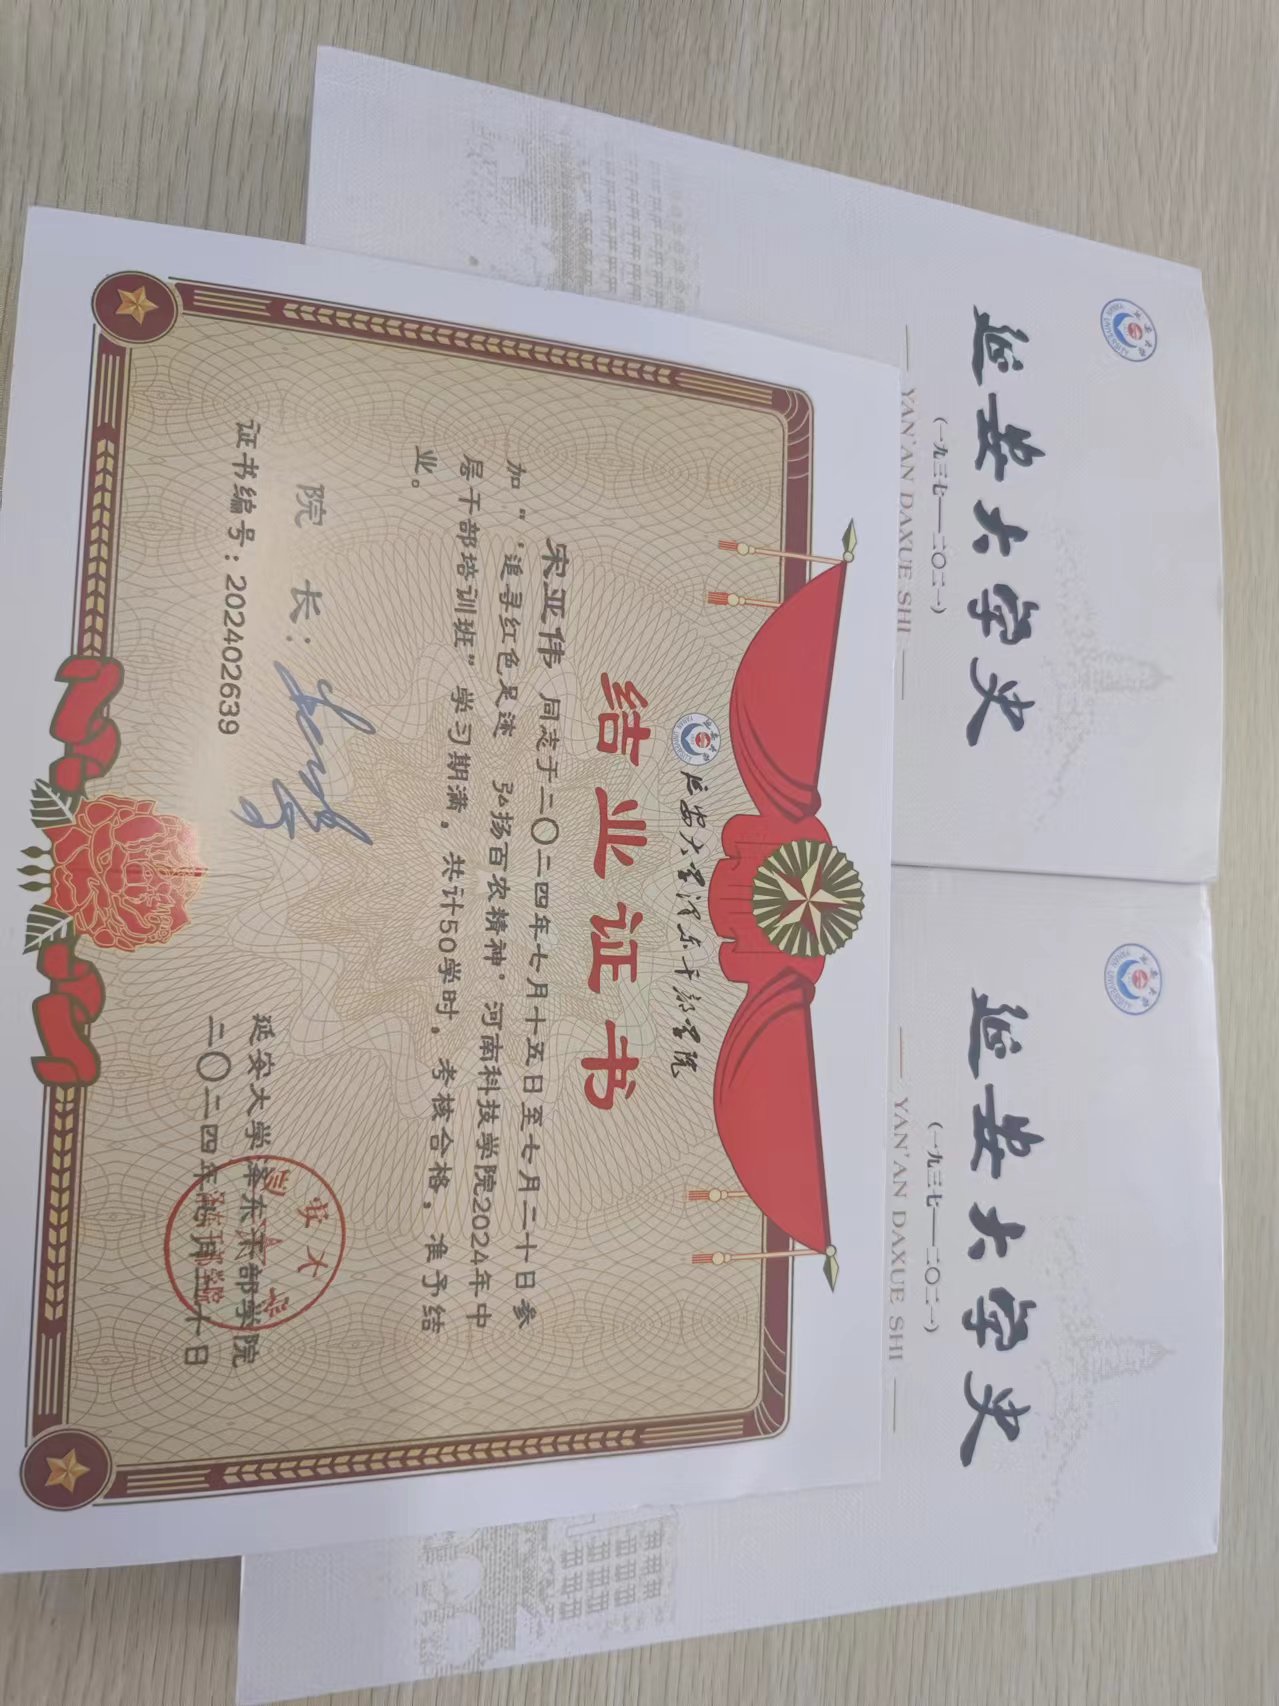 延安大学史
(一九三七——二〇二一)
YAN'AN DAXUE SHI
延安大学史
(一九三七——二〇二一)
YAN'AN DAXUE SHI
延安大学泽东干部学院
结业证书
宋亚伟 同志于二〇二四年七月十五日至七月二十日参
加“‘追寻红色足迹 弘扬百农精神’河南科技学院2024年中
层干部培训班”学习期满，共计50学时，考核合格，准予结
业。
院 长：
延安大学泽东干部学院
证书编号：202402639
二〇二四年七月二十日